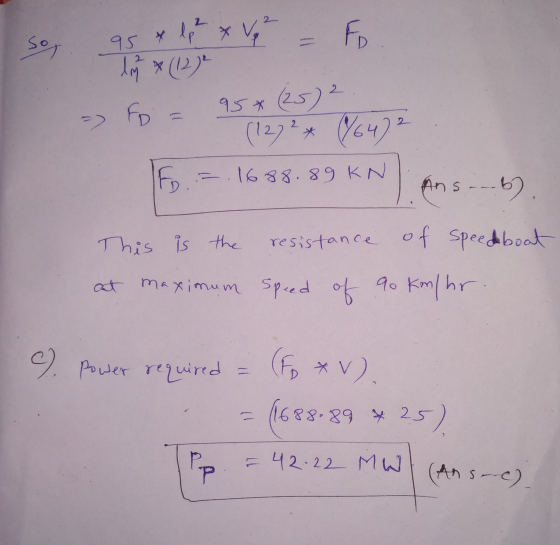 So, 95 * lp² * Vp² / lm² * (12)² = FD
=> FD = 95 * (25)² / (12)² * (1/64)²
FD. = 1688.89 KN. (Ans---b).
This is the resistance of speedboat
at maximum speed of 90 Km/hr.
c). Power required = (FD * V).
= (1688.89 * 25)
Pp = 42.22 MW (Ans--c).